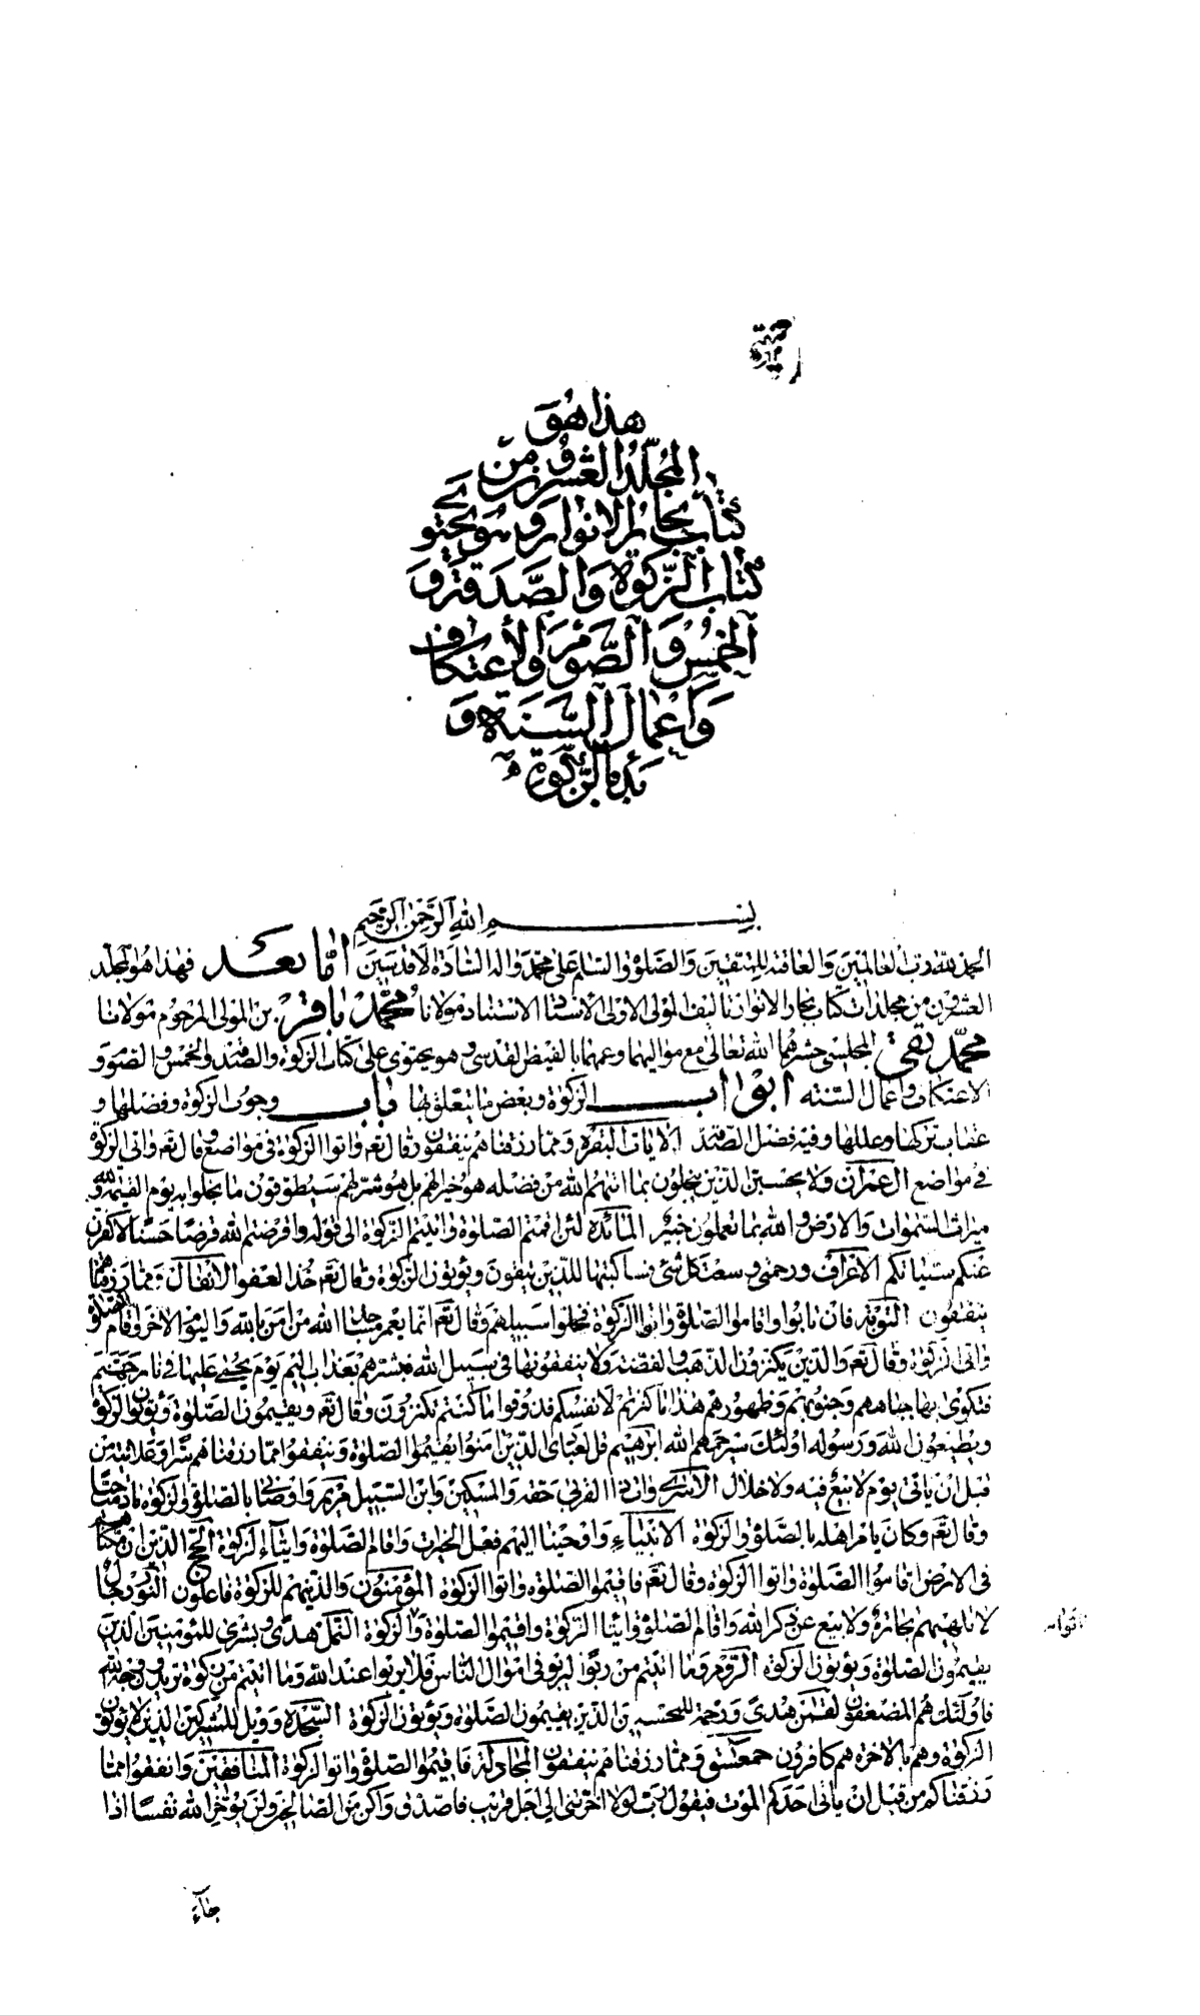 هذا هو
المجلد العشرون من
كتاب بحار الانوار وهو يحتوى
كتاب الزكوة والصدقة و
الخمس والصوم والاعتكاف
واعمال السنة و
الزكوة
بسم الله الرحمن الرحيم
الحمد لله رب العالمين والعاقبة للمتقين والصلوة والسلم على محمد واله السادة الاقدسين اما بعد فهذا هو المجلد
العشرون من مجلدات كتاب بحار الانوار تاليف المولى الاولى الاستاد الاستناد مولانا محمد باقر بن المولى المرحوم مولانا
محمد تقى المجلسي حشرهما الله تعالى مع مواليهما وعمهما بالفيض القدسى وهو يحتوى على كتاب الزكوة والصدقة والخمس والصوم و
الاعتكاف واعمال السنة ابواب الزكوة وبعض ما يتعلق بها باب وجوب الزكوة وفضلها و
عقاب تركها وعللها وفيه فضل الصدقة الايات البقرة ومما رزقناهم ينفقون وقال تع واتوا الزكوة فى مواضع وقال تع واتى الزكوة
فى مواضع ال عمران ولا يحسبن الذين يبخلون بما اتيهم الله من فضله هو خيرا لهم بل هو شر لهم سيطوقون ما بخلوا به يوم القيمة ولله
ميراث السموات والارض والله بما تعملون خبير المائدة لئن اقمتم الصلوة واتيتم الزكوة الى قوله واقرضتم الله قرضا حسنا لاكفرن
عنكم سيئاتكم الاعراف ورحمتى وسعت كل شئ فساكتبها للذين يتقون ويؤتون الزكوة وقال تع خذ العفو الانفال ومما رزقناهم
ينفقون التوبة فان تابوا واقاموا الصلوة واتوا الزكوة فخلوا سبيلهم وقال تع انما يعمر مساجد الله من امن بالله واليوم الاخر واقام الصلوة
واتى الزكوة وقال تع والذين يكنزون الذهب والفضة ولا ينفقونها فى سبيل الله فبشرهم بعذاب اليم يوم يحمى عليها فى نار جهنم
فتكوى بها جباههم وجنوبهم وظهورهم هذا ما كنزتم لانفسكم فذوقوا ما كنتم تكنزون وقال تع ويقيمون الصلوة ويؤتون الزكوة
ويطيعون الله ورسوله اولئك سيرحمهم الله ابرهيم قل لعبادى الذين امنوا يقيموا الصلوة وينفقوا مما رزقناهم سرا وعلانية من
قبل ان ياتى يوم لا بيع فيه ولا خلال الاسرى وات ذا القربى حقه والمسكين وابن السبيل مريم واوصانى بالصلوة والزكوة ما دمت حيا
وقال تع وكان يامر اهله بالصلوة والزكوة الانبياء واوحينا اليهم فعل الخيرات واقام الصلوة وايتاء الزكوة الحج الذين ان مكناهم
فى الارض اقاموا الصلوة واتوا الزكوة وقال تع فاقيموا الصلوة واتوا الزكوة المؤمنون والذين هم للزكوة فاعلون النور رجال
لا تلهيهم تجارة ولا بيع عن ذكر الله واقام الصلوة وايتاء الزكوة واقيموا الصلوة واتوا الزكوة النمل هدى وبشرى للمؤمنين الذين
يقيمون الصلوة ويؤتون الزكوة الروم وما اتيتم من ربوا ليربو فى اموال الناس فلا يربوا عند الله وما اتيتم من زكوة تريدون وجه الله
فاولئك هم المضعفون لقمن هدى ورحمة للمحسنين الذين يقيمون الصلوة ويؤتون الزكوة السجدة وويل للمشركين الذين لا يؤتون
الزكوة وهم بالاخرة هم كافرون حمعسق ومما رزقناهم ينفقون المجادلة فاقيموا الصلوة واتوا الزكوة المنافقين وانفقوا مما
رزقناكم من قبل ان ياتى احدكم الموت فيقول رب لولا اخرتنى الى اجل قريب فاصدق واكن من الصالحين ولن يؤخر الله نفسا اذا
جاء